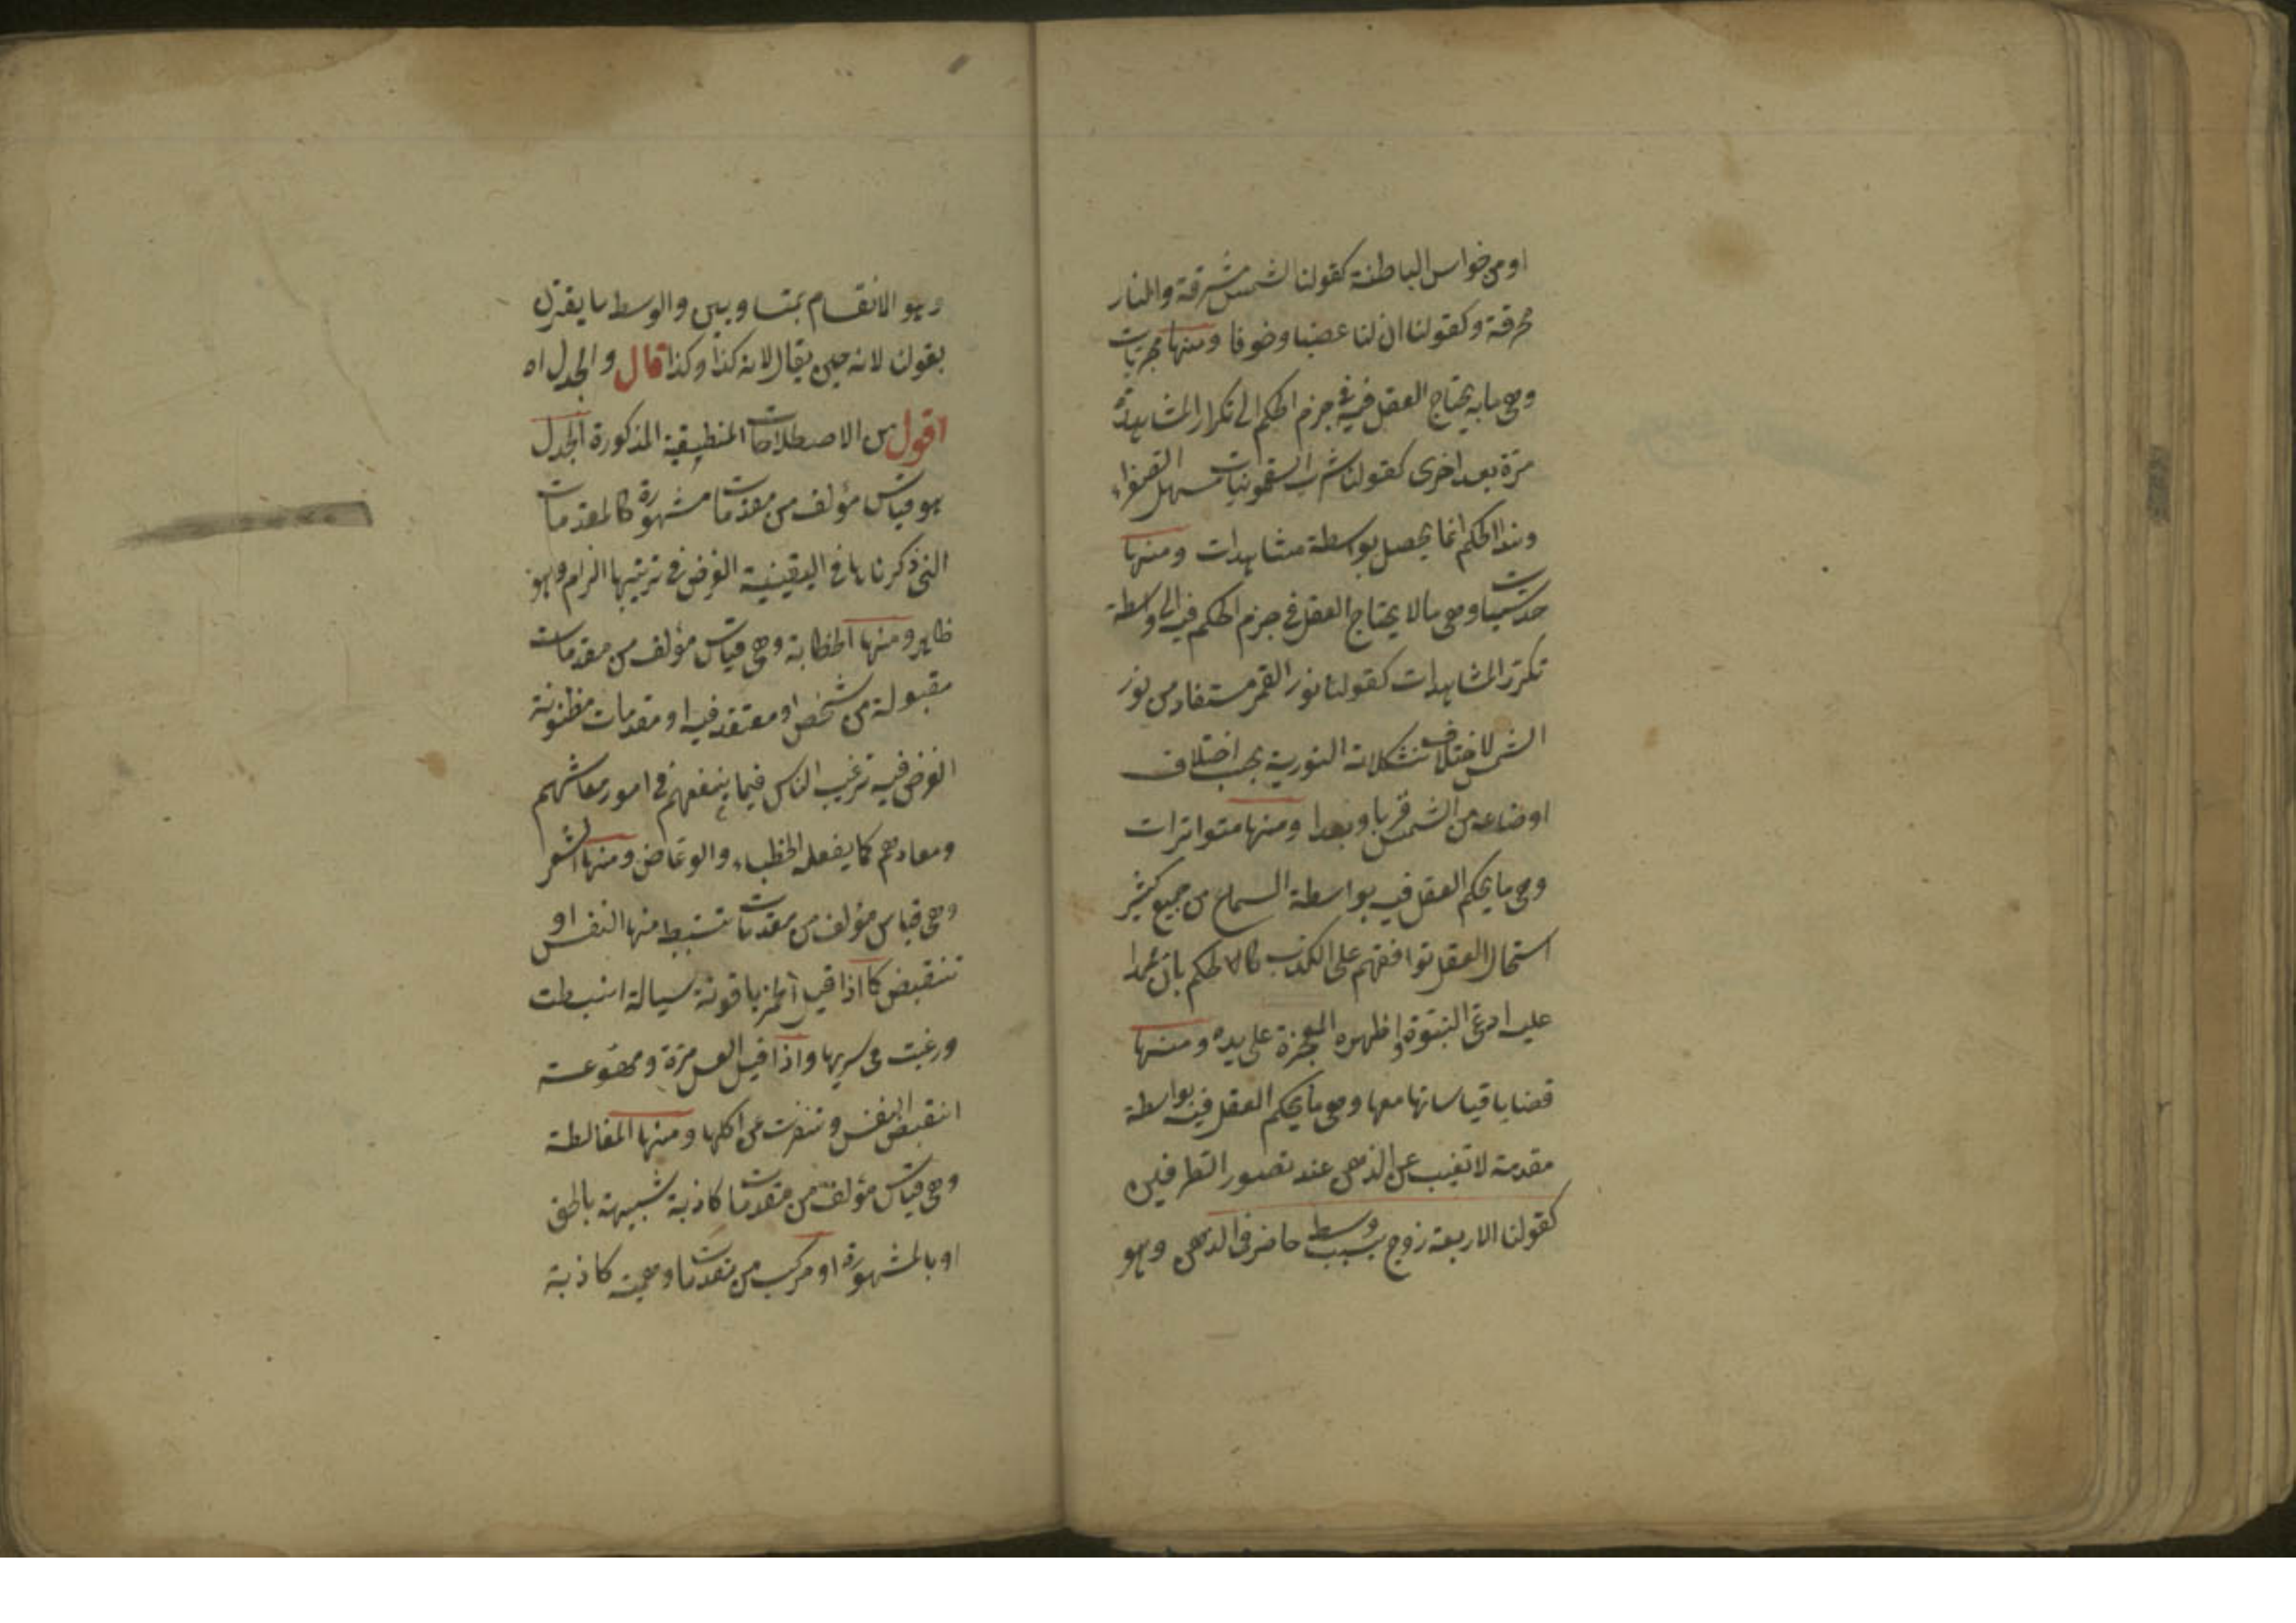 او من خواس الباطنة كقولنا الشمس مشرقة والنار
محرقة وكقولنا ان لنا غضبا وخوفا ومنها مجربات
وهى ما يحتاج العقل فيه فى جزم الحكم الى تكرار المشاهدة
مرة بعد اخرى كقولنا شرب السقمونيات مسهل الصفراء
وهذا الحكم انما يحصل بواسطة مشاهدات ومنها
حدسيات وهى ما لا يحتاج العقل فى جزم الحكم فيه الى واسطة
تكرر المشاهدات كقولنا نور القمر مستفاد من نور
الشمس لاختلاف تشكلاته النورية بحسب اختلاف
اوضاعه من الشمس قربا وبعدا ومنها متواترات
وهى ما يحكم العقل فيه بواسطة السماع من جميع كثير
استحال العقل توافقهم على الكذب كالحكم بان محمدا
عليه ادعى النبوة واظهره المعجزة على يده ومنها
قضايا قياساتها معها وهى ما يحكم العقل فيه بواسطة
مقدمة لا تغيب عن الذهن عند تصور الطرفين
كقولنا الاربعة زوج بسبب وسط حاضر فى الذهن وهو
وهو الانقسام بمتساويين والوسط ما يقترن
بقولن لانه حين يقال لانه كذا وكذا قال والجدل اه
اقول من الاصطلاحات المنطيقية المذكورة الجدل
هو قياس مؤلف من مقدمات مشهورة كالمقدمات
التى ذكرناها فى اليقينية الغرض فى ترتيبها الزام وهو
ظاهر ومنها الخطابة وهى قياس مؤلف من مقدمات
مقبولة من شخص او معتقد فيه او مقدمات مظنونة
الغرض فيه ترغيب الناس فيما ينفعهم فى امور معاشهم
ومعادهم كما يفعله الخطباء والوعاض ومنها الشعر
وهى قياس مؤلف من مقدمات تنبسط منها النفس او
تنقبض كما اذا قيل الخمر ياقوتة سيالة انبسطت
ورغبت فى شربها واذا قيل العسل مرة ومهوعة
انقبض النفس وتنفرت عن اكلها ومنها المغالطة
وهى قياس مؤلف من مقدمات كاذبة شبيهة بالحق
او بالمشهورة او مركب من مقدمات وهمية كاذبة